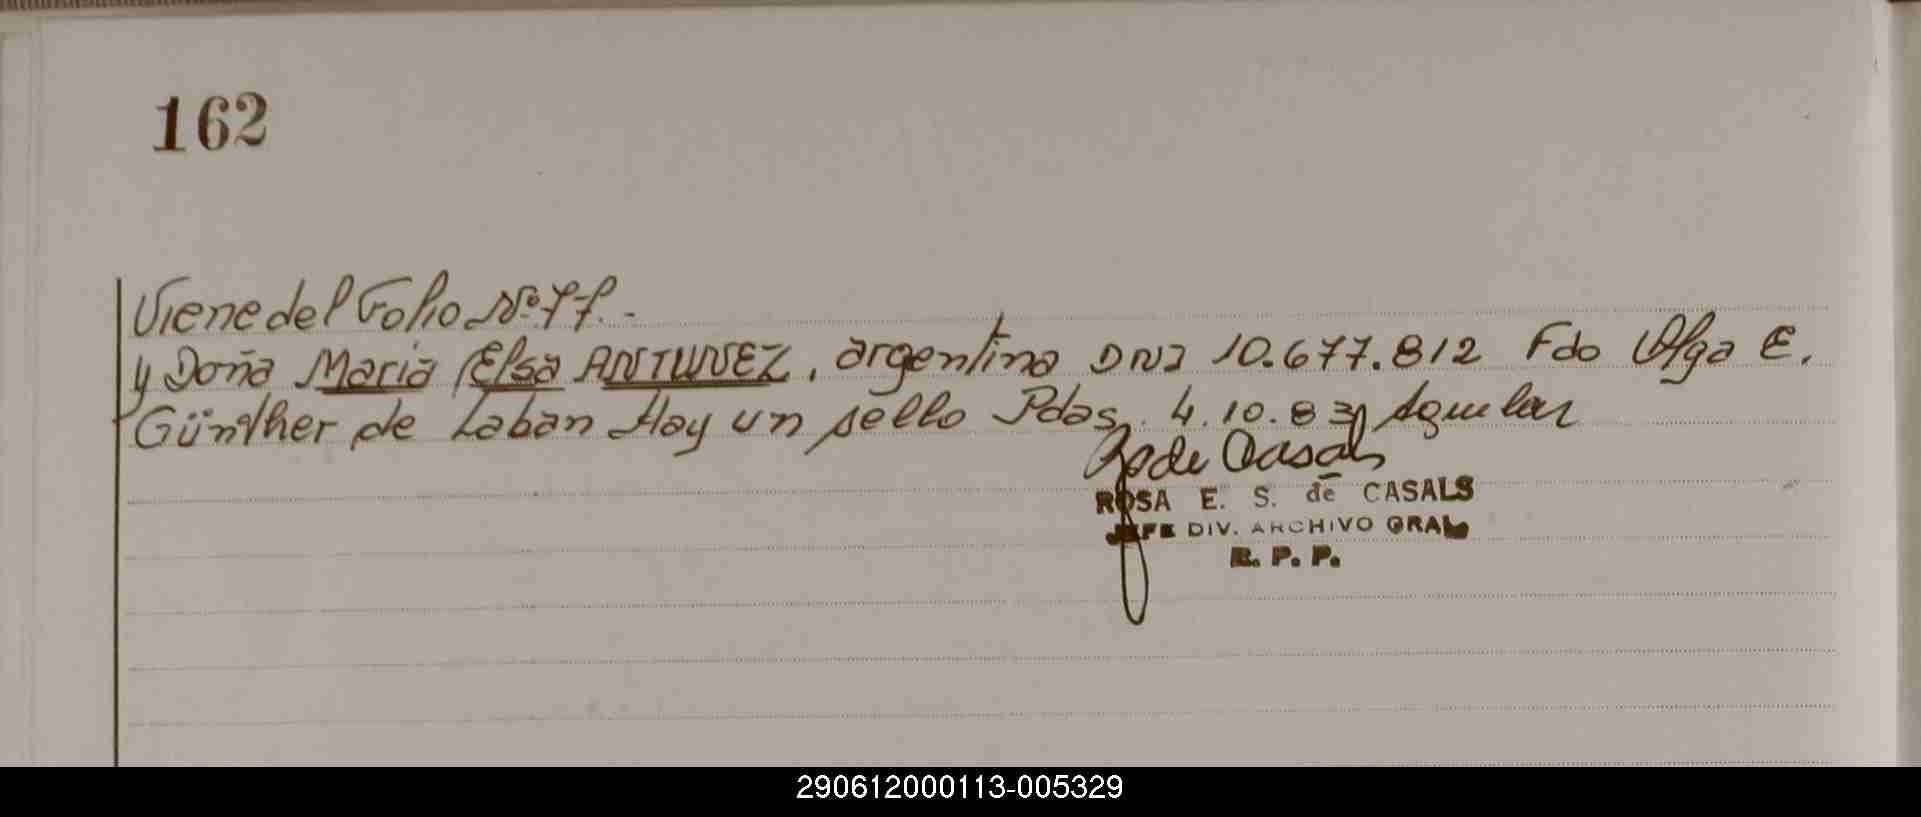 162
Viene del Folio Nº 77.-
y Doña María Elsa ANTUNEZ, argentina DNI 10.677.812 Fdo Olga E.
Günther de Laban Hay un sello Pdas. 4.10.83 Aguilar
R de Casals
ROSA E. S. de CASALS
JEFE DIV. ARCHIVO GRAL
R. P. P.
290612000113-005329